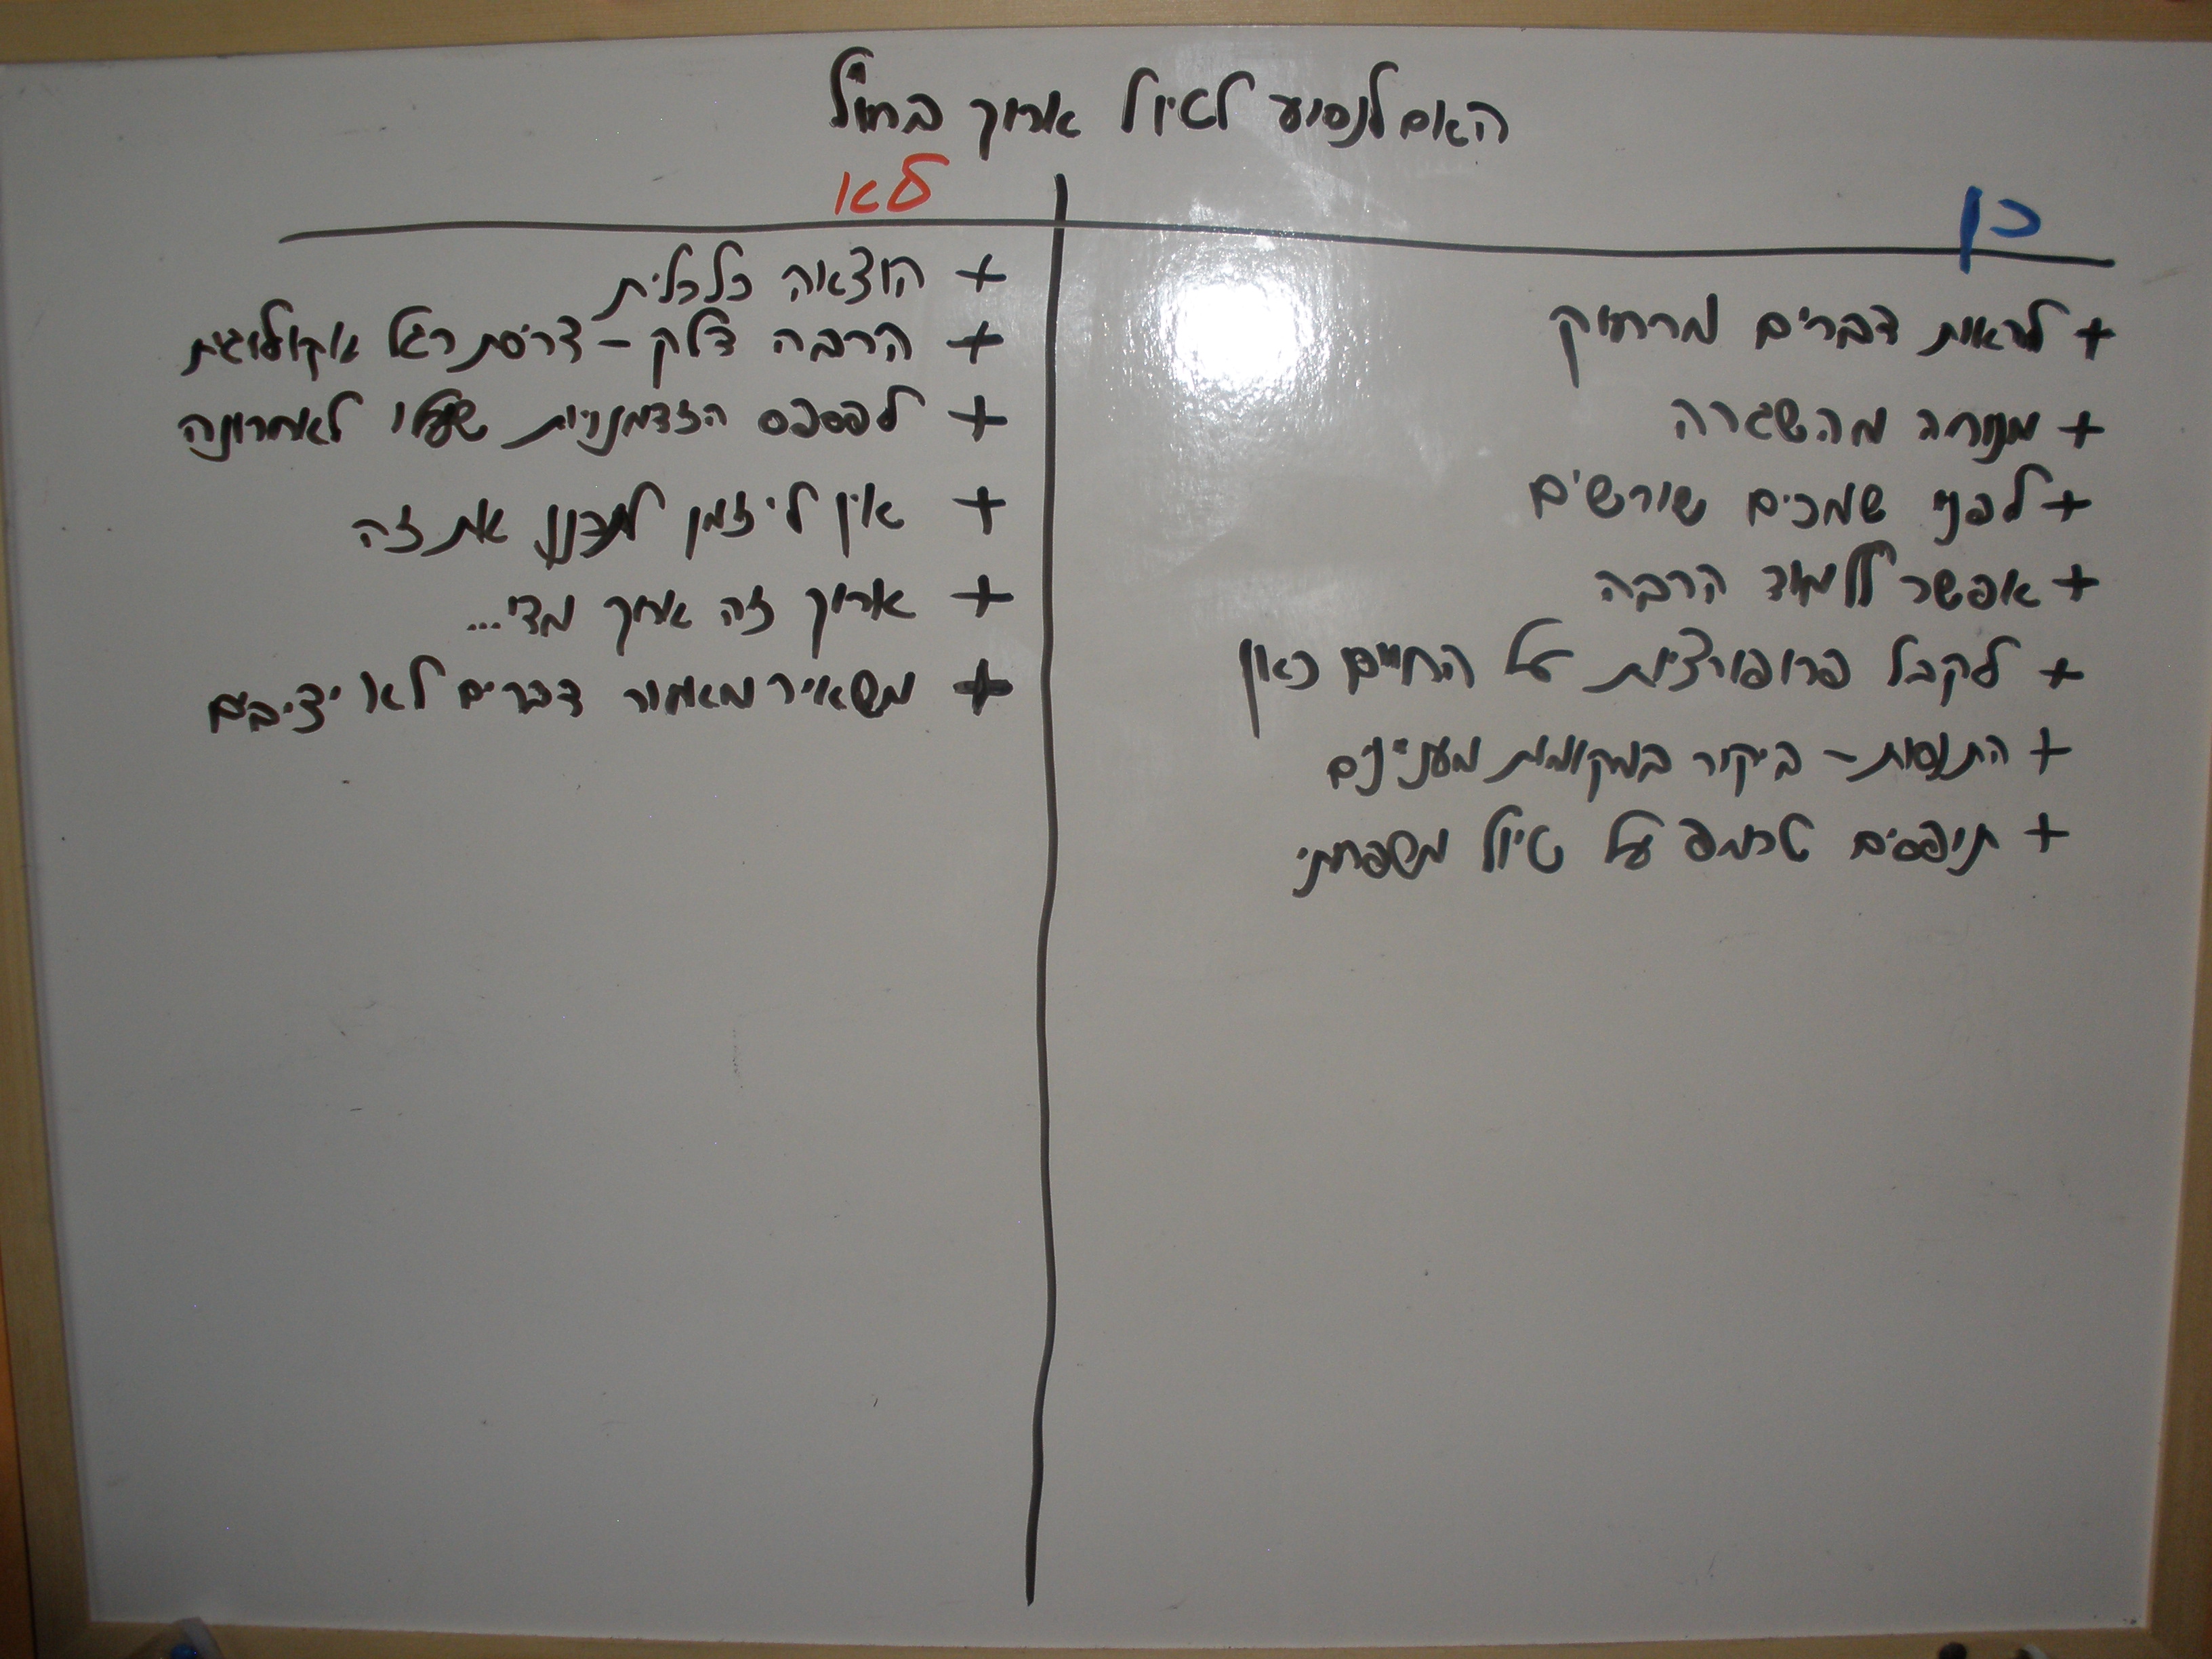 האם לנסוע לטיול ארוך בחו"ל
כן
+ לראות דברים מרחוק
+ מנוחה מהשגרה
+ לפני שמכים שורשים
+ אפשר ללמוד הרבה
+ לקבל פרופורציות על החיים כאן
+ התנסות - ביקור במקומות מעניינים
+ תופסים טרמפ על טיול משפחתי
לא
+ הוצאה כלכלית
+ הרבה דלק - דריסת רגל אקולוגית
+ לפספס הזדמנויות שעלו לאחרונה
+ אין לי זמן לתכנן את זה
+ ארוך זה ארוך מדי...
+ משאיר מאחור דברים לא יציבים